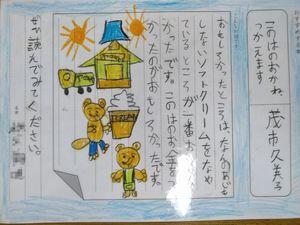 このはのおかね、
つかえます
茂市久美子
おもしろかったところは、なんのあじも
しないソフトクリームをなめ
ているところが一番お
かったです。このはのお金をつ
かったのがおもしろかったです。
ぜひ読んでみてください。